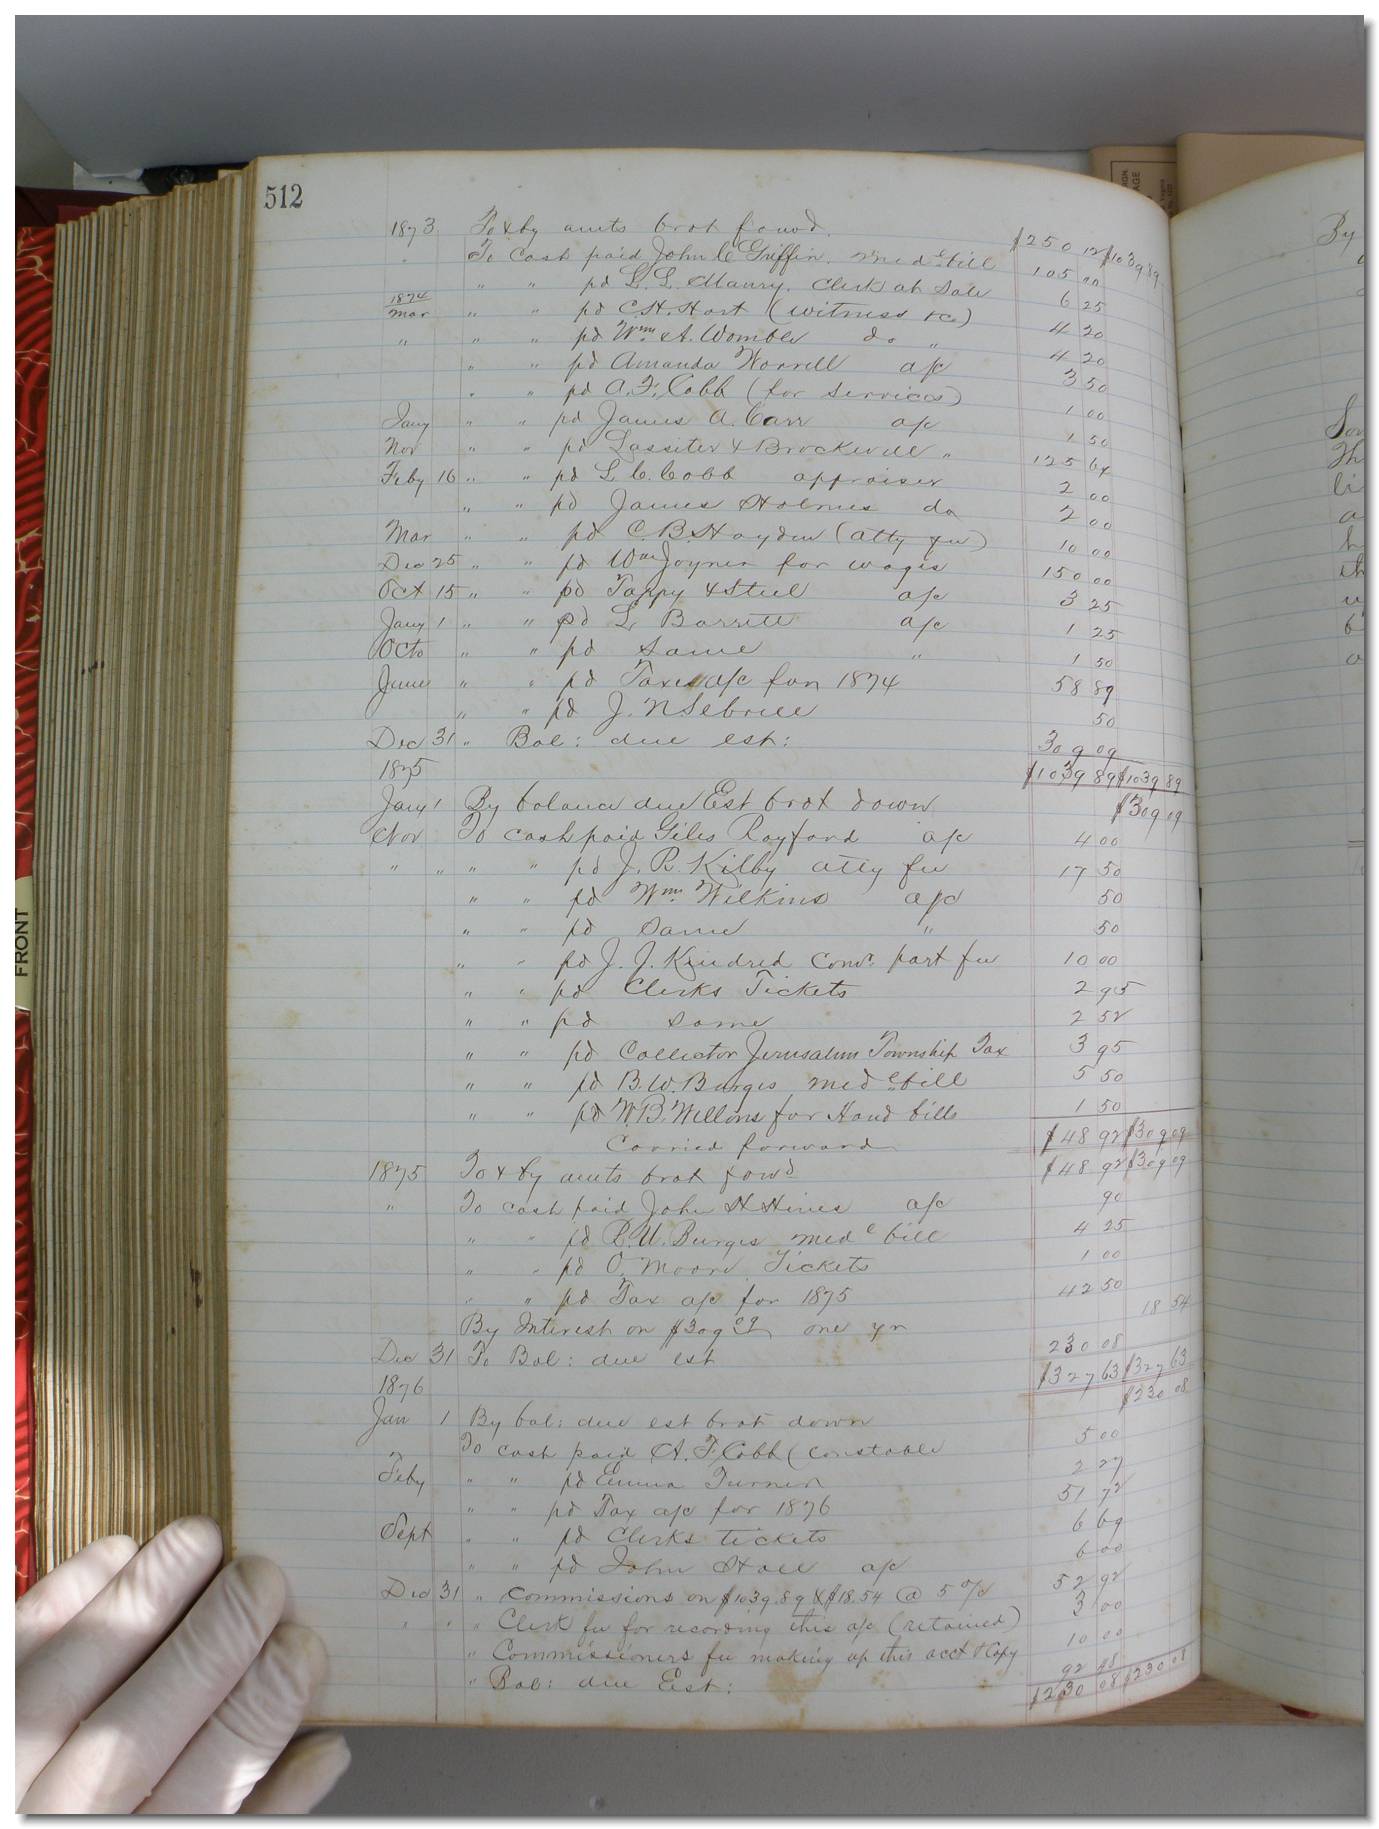 512
1873 To & by amts brot fowd. $250 12 $1039 89
" To Cash paid John C Griffin. med.c bill 105 00
" " pd L. L. Manry. Clerk at Sale 6 25
1874 Mar " " pd C. H. Hart (witness &c) 4 20
" " " pd Wm. A. Womble do " 4 20
" " pd Amanda Worrell a/c 3 50
" " pd A. F. Cobb (for services) 1 00
Jany " " pd James A. Carr a/c 1 50
Nov " " pd Lassiter & Brockwell " 125 64
Feby 16 " " pd L. C. Cobb appraiser 2 00
" " pd James Holmes do 2 00
Mar " " pd C. B. Hayden (atty fee) 10 00
Dec 25 " " pd Wm Joyner for wages 150 00
Oct 15 " " pd Tappy & Steel a/c 3 25
Jany 1 " " pd L. Barrett a/c 1 25
Octo " " pd Same " 1 50
June " " pd Taxes a/c for 1874 58 89
" " pd J. N Sebrell 50
Dec 31 " Bal: due est: 309 09
1875 $1039 89 $1039 89
Jany 1 By balance due Est brot down $309 09
Nov To cash paid Giles Rayford a/c 4 00
" " " " pd J. R. Kilby atty fee 17 50
" " pd Wm. Wilkins a/c 50
" " pd Same " 50
" " pd J. J. Kindred Comr. part fee 10 00
" " pd Clerks Tickets 2 95
" " pd Same 2 52
" " pd Collector Jerusalem Township Tax 3 95
" " pd B. W. Burges med c bill 5 50
" " pd W. B. Wellons for Hand bills 1 50
Carried forward $48 92 $309 09
1875 To & by amts brot fowd $48 92 $309 09
" To cash paid John H Hines a/c 90
" " pd R. U. Burges med c bill 4 25
" " pd O. Moore Tickets 1 00
" " pd Tax a/c for 1875 42 50
By Interest on $309 09 one yr 18 54
Dec 31 To Bal: due est 230 08
1876 $327 63 $327 63
Jan 1 By bal: due est brot down $230 08
To cash paid A. F. Cobb (constable 5 00
Feby " " pd Emma Turner 2 27
" " pd Tax a/c for 1876 51 72
Sept " " pd Clerks tickets 6 69
" " pd John Hall a/c 6 00
Dec 31 " Commissions on $1039.89 & $18.54 @ 5 % 52 92
" " " Clerk fee for recording this a/c (retained) 3 00
" Commissioners fee making up this acct & Copy 10 00
" Bal: due Est: 92 48
$230 08 $230 08
By
FRONT